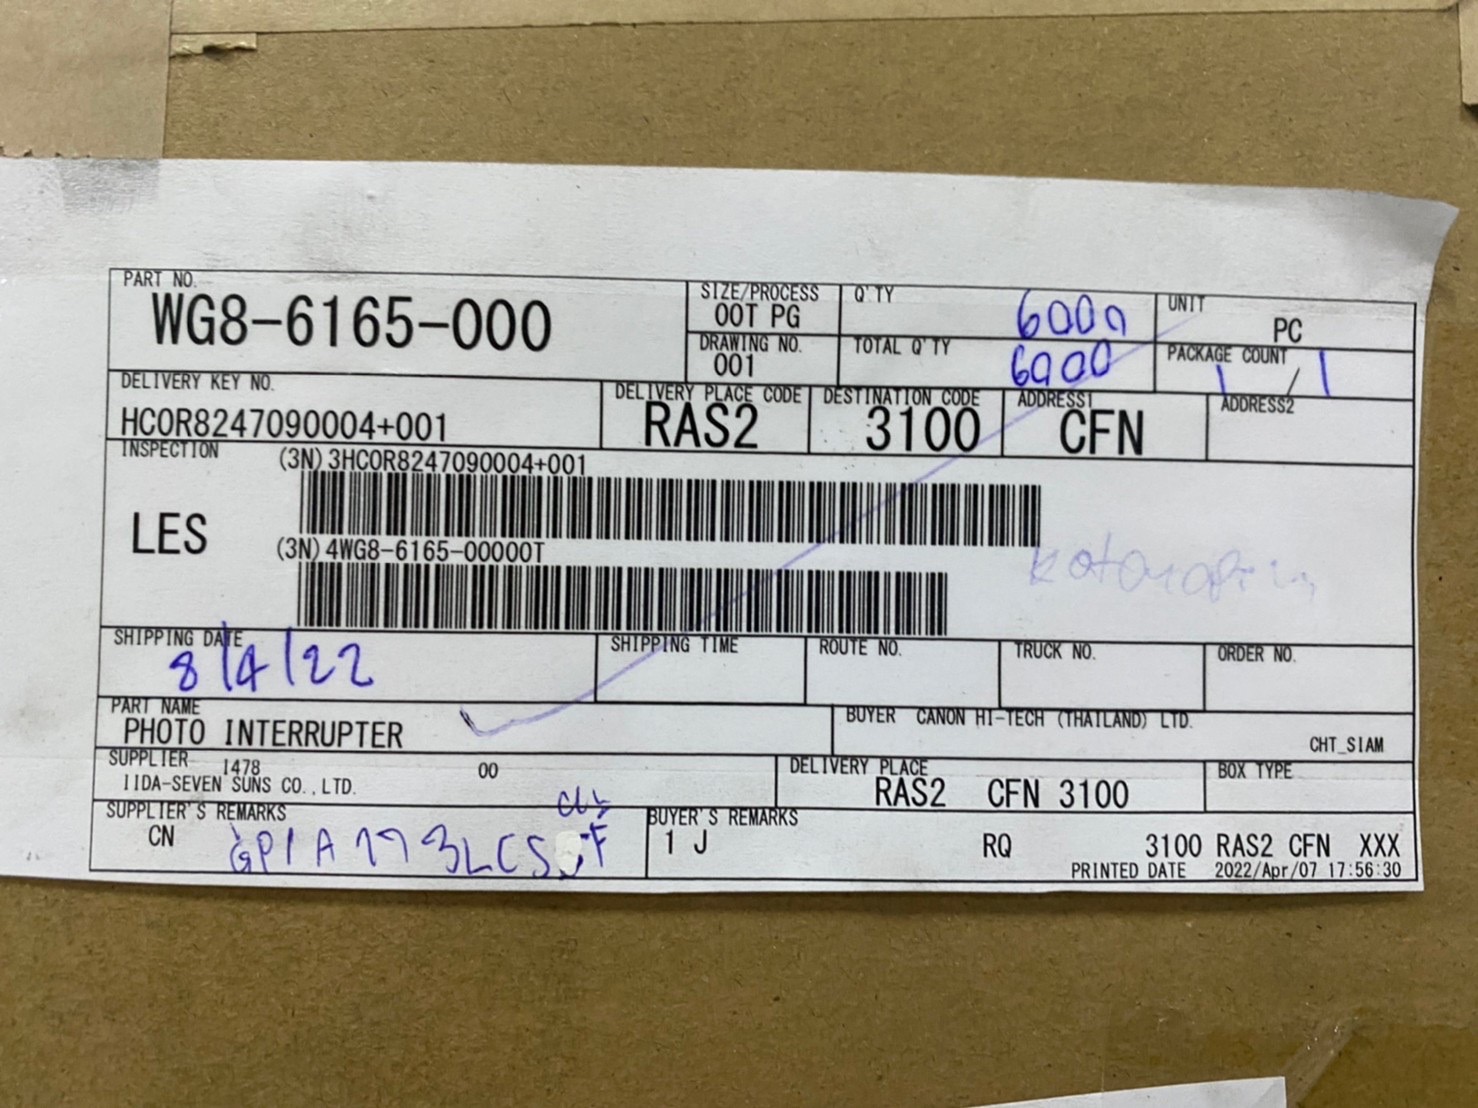 PART NO.
WG8-6165-000
SIZE/PROCESS
00T PG
DRAWING NO.
001
Q'TY 6000
TOTAL Q'TY 6000
UNIT
PC
PACKAGE COUNT
1/1
DELIVERY KEY NO.
HCOR8247090004+001
DELIVERY PLACE CODE
RAS2
DESTINATION CODE
3100
ADDRESS1
CFN
ADDRESS2
INSPECTION
LES
(3N)3HCOR8247090004+001
(3N)4WG8-6165-00000T
SHIPPING DATE
8/4/22
SHIPPING TIME
ROUTE NO.
TRUCK NO.
ORDER NO.
PART NAME
PHOTO INTERRUPTER
BUYER CANON HI-TECH (THAILAND) LTD.
CHT_SIAM
SUPPLIER 1478 00
IIDA-SEVEN SUNS CO.,LTD.
DELIVERY PLACE
RAS2 CFN 3100
BOX TYPE
SUPPLIER'S REMARKS
CN
BUYER'S REMARKS
1 J RQ 3100 RAS2 CFN XXX
PRINTED DATE 2022/Apr/07 17:56:30